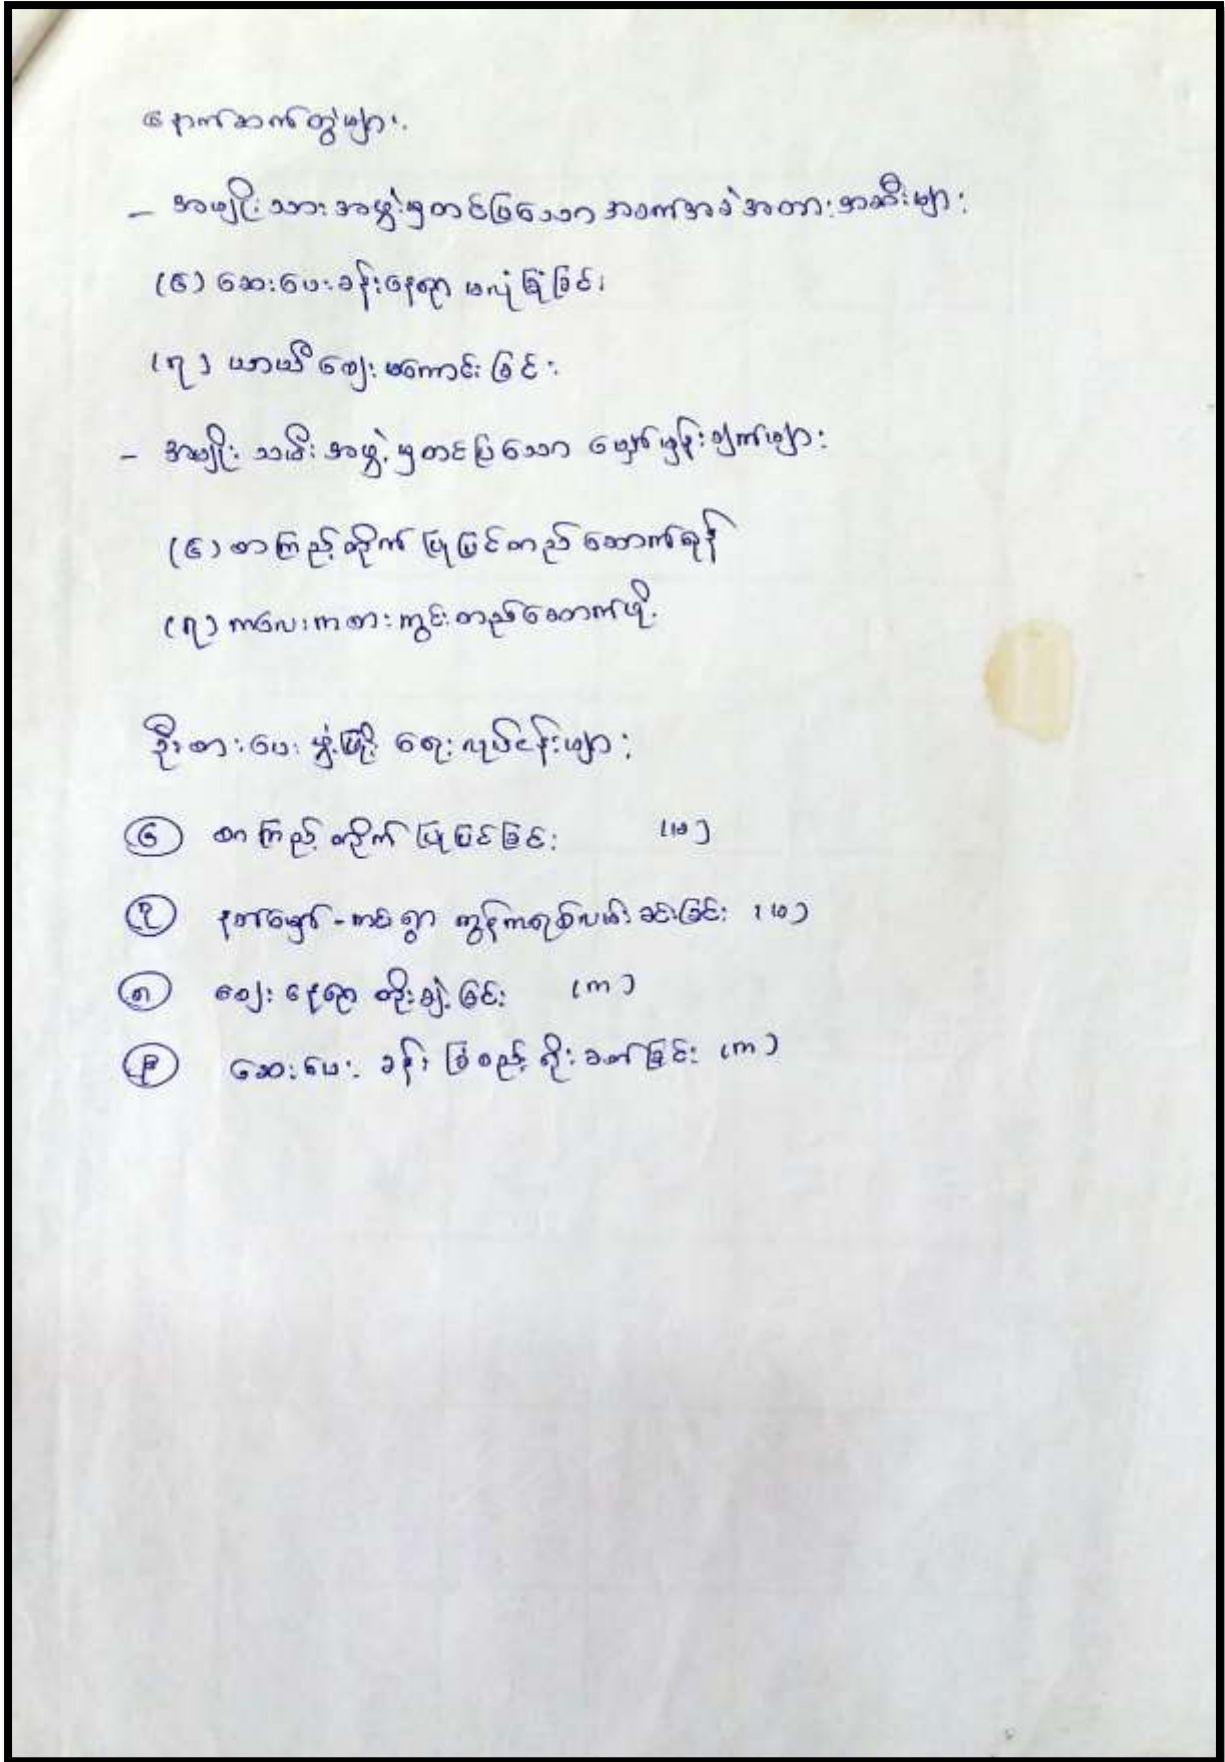 နောက်ဆက်တွဲများ
- အမျိုးသားအဖွဲ့မှတင်ပြသော အခက်အခဲအတားအဆီးများ
(၆) ဆေးပေးခန်းနေရာ မလုံခြုံခြင်း
(၇) ယာယီဈေး မကောင်းခြင်း
- အမျိုးသမီးအဖွဲ့မှတင်ပြသော မျှော်မှန်းချက်များ
(၆) စာကြည့်တိုက် ပြုပြင်တည်ဆောက်ရန်
(၇) ကလေးကစားကွင်းတည်ဆောက်ဖို့
ဦးစားပေး ဖွံ့ဖြိုးရေးလုပ်ငန်းများ
၁ စာကြည့်တိုက် ပြုပြင်ခြင်း (မ)
၂ ကွန်ကရစ်လမ်းခင်းခြင်း (မ)
၃ ဈေးနေရာ တိုးချဲ့ခြင်း (က)
၄ ဆေးပေးခန်း ခြံစည်းရိုးခတ်ခြင်း (က)